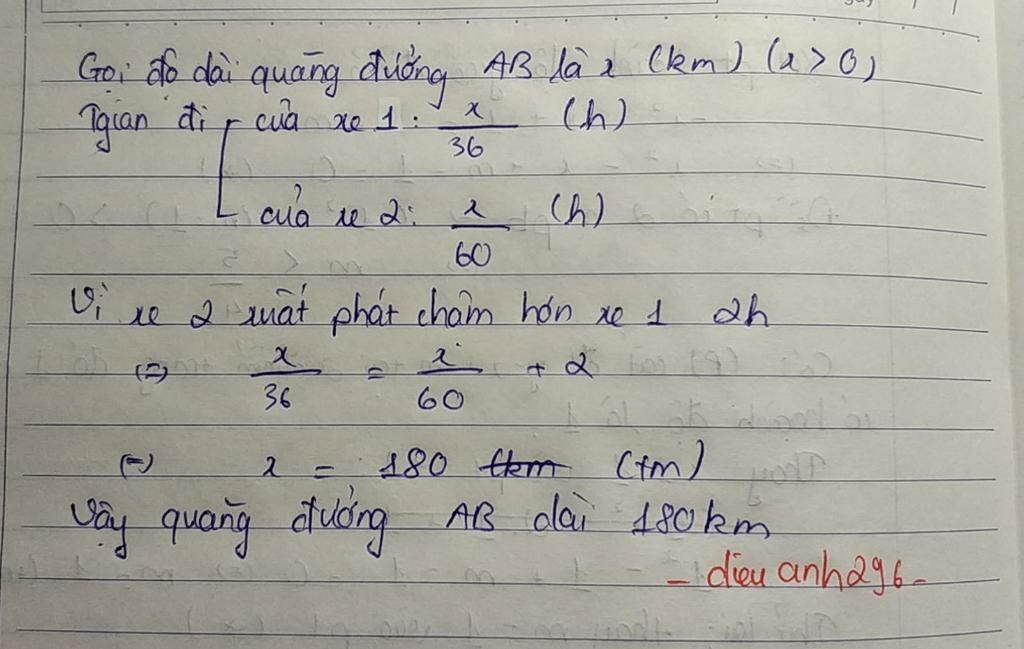 Gọi độ dài quãng đường AB là x (km) (x > 0)
Tgian đi của xe 1: x/36 (h)
của xe 2: x/60 (h)
Vì xe 2 xuất phát chậm hơn xe 1 2h
(=) x/36 = x/60 + 2
(=) x = 180 (tm)
Vậy quãng đường AB dài 180km
- dieu anh296 -